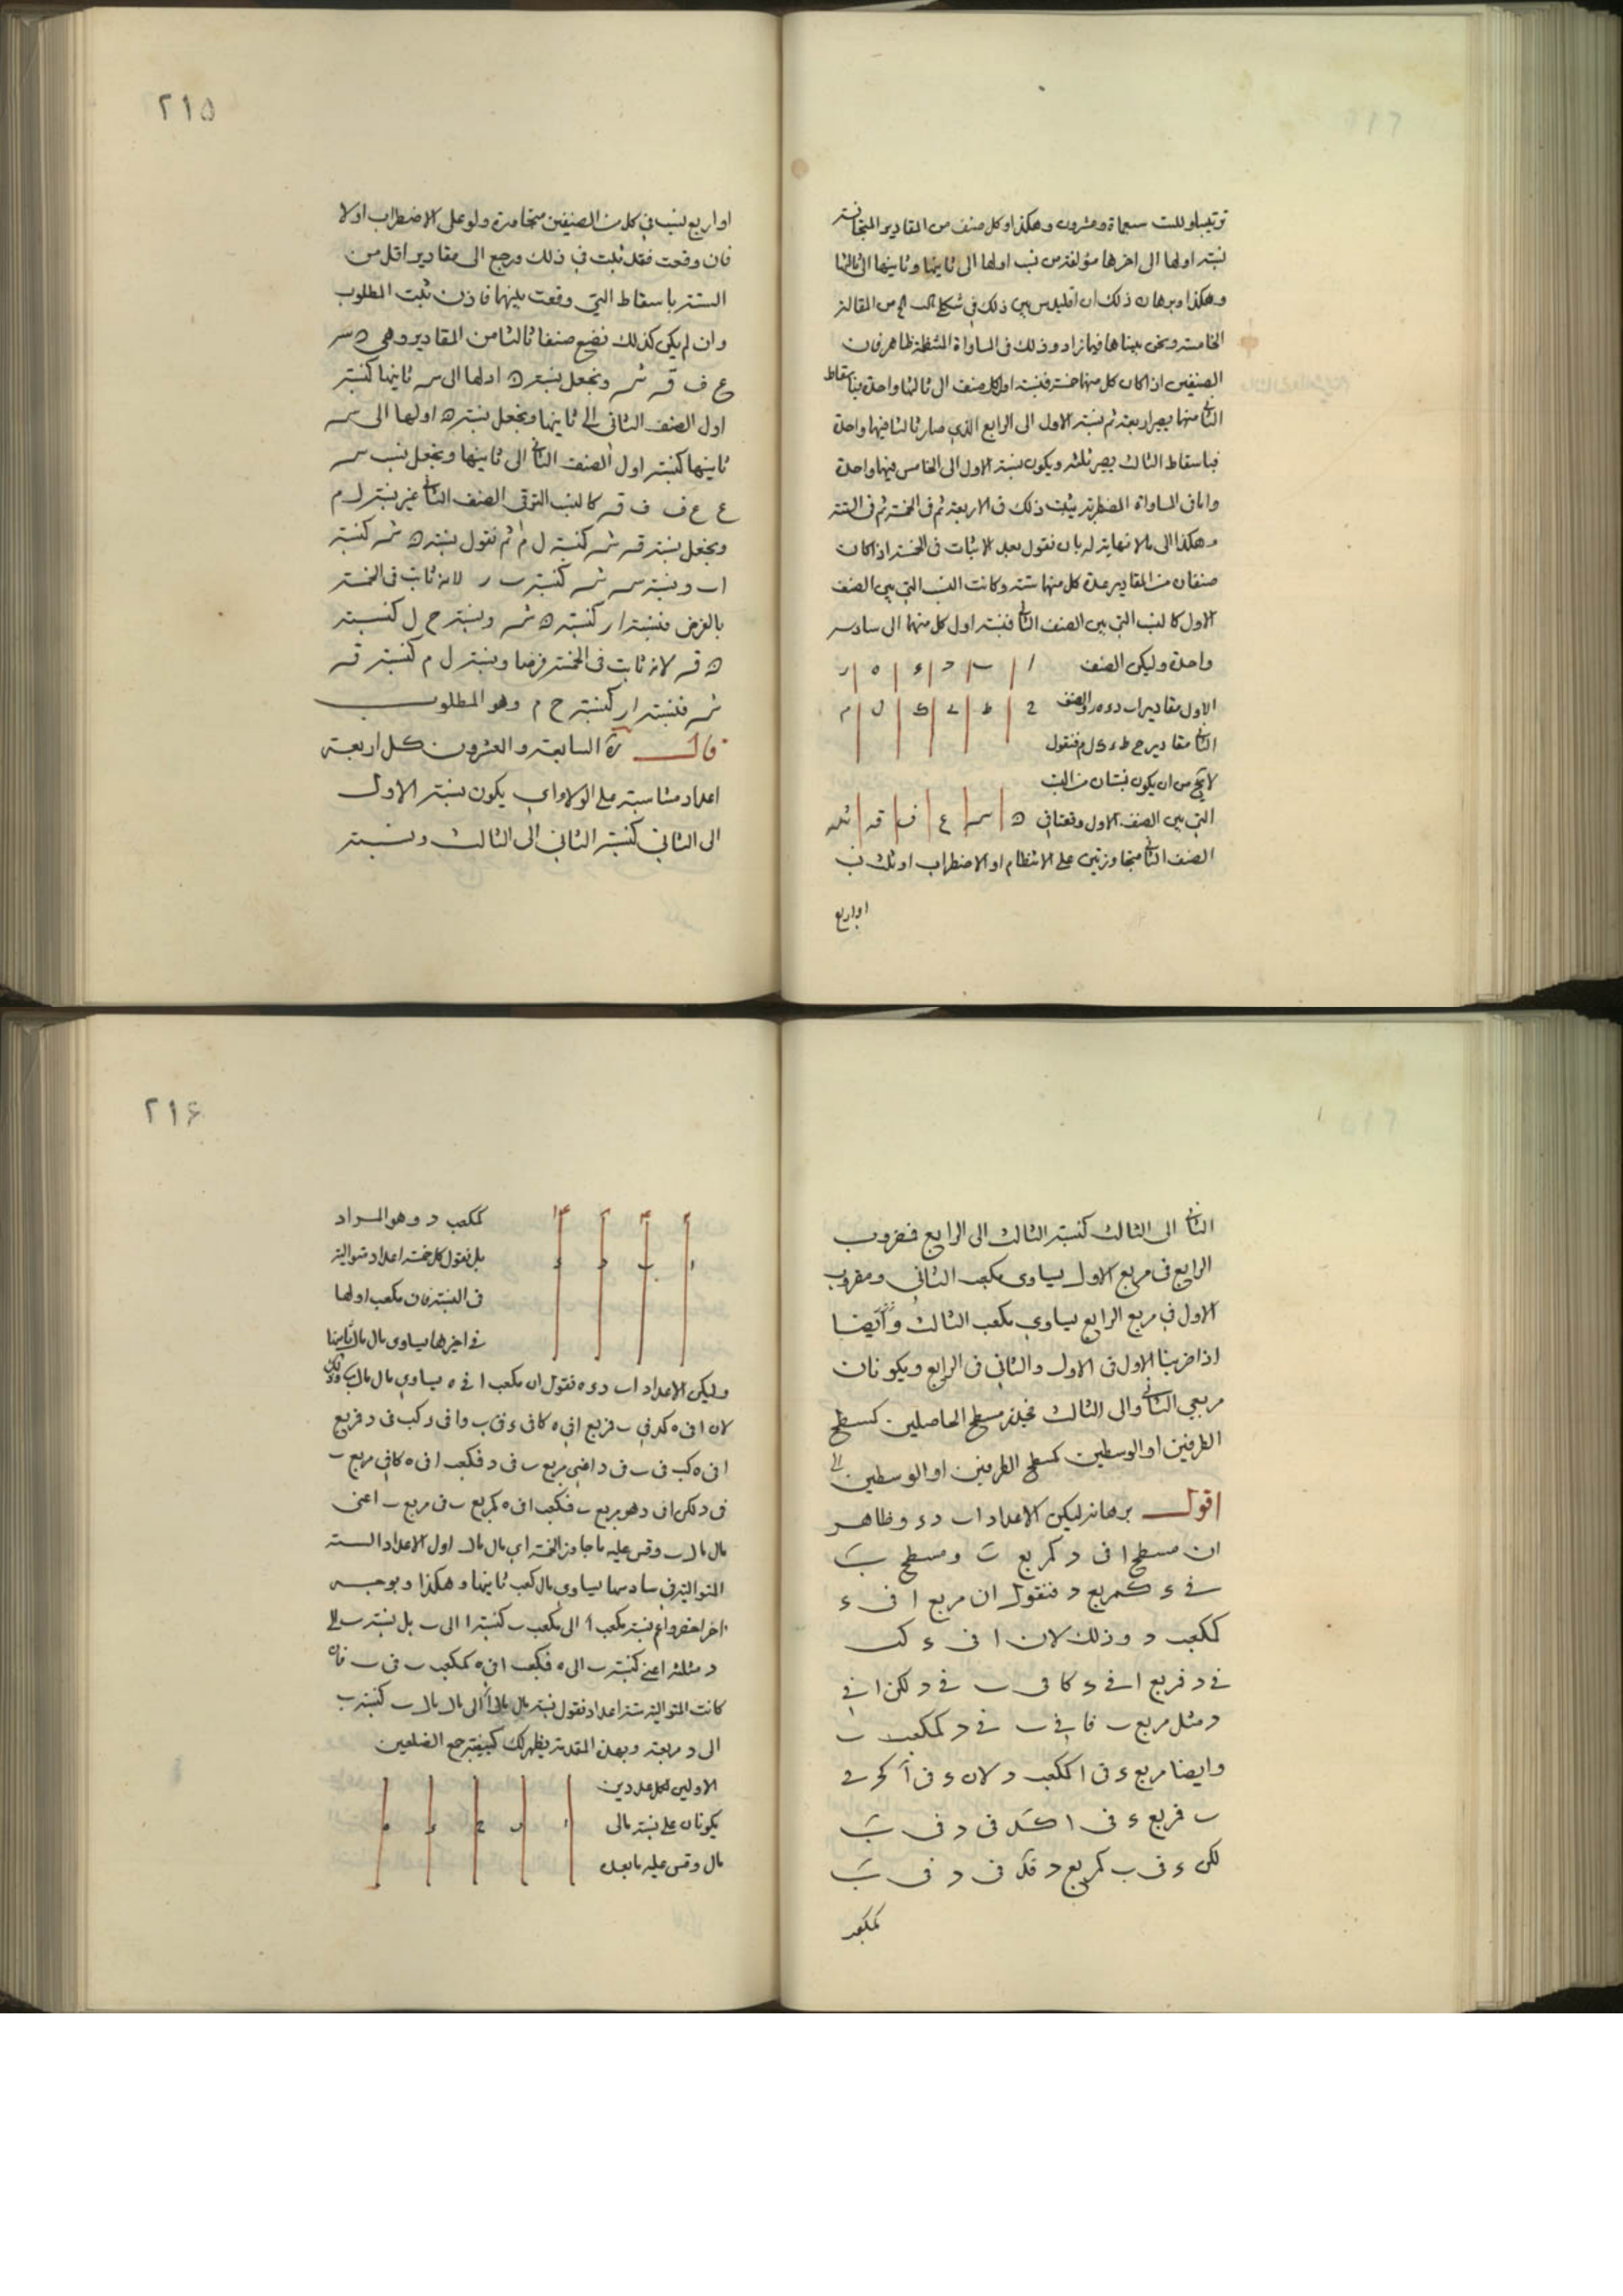 ترتيبا وللست سبعماة وعشرون وهكذا وكل صنف من المقادير المتجانسة
نسبة اولها الى اخرها مؤلفة من نسب اولها الى ثانيها وثانيها الى ثالثها
وهكذا وبرهان ذلك ان اقليدس بين ذلك في شكلى من المقالة
الخامسة ونحن بيناها فيما زاد وذلك في المساواة المنتظمة ظاهر فان
الصنفين اذا كان كل منهما خمسة فنسبة اول كل صنف الى ثالثها واحدة فباسقاط
الثانى منهما يصير اربعة ثم نسبة الاول الى الرابع الذي صار ثالثا فيهما واحدة
فباسقاط الثالث يصير ثلثة ويكون نسبة الاول الى الخامس فيهما واحدة
واما في المساواة المضطربة يثبت ذلك في الاربعة ثم في الخمسة ثم في الستة
وهكذا الى ما لا نهاية له بان نقول بعد الاثبات في الخمسة اذا كانت
صنفان من المقادير عدة كل منهما ستة وكانت النسب التي بين الصنف
الاول كالنسب التي بين الصنف الثانى فنسبة اول كل منهما الى سادسه
واحدة وليكن الصنف ا ب د ء ه ر
الاول مقادير اب د ء ه ر والصنف ح ط ى ك ل م
الثانى مقادير ح ط ى ك ل م فنقول
لا يخ من ان يكون نسبتان من النسب
التي بين الصنف الاول وقعتا في ه س ع ف ق ش
الصنف الثانى متجاوزتين على الانتظام او الاضطراب او ثلث نسب
او اربع
٢١۵
او اربع نسب في كل من الصنفين متجاورة ولو على الاضطراب اولا
فان وقعت فقد ثبت في ذلك ورجع الى مقادير اقل من
الستة باسقاط التي وقعت بينهما فاذن ثبت المطلوب
وان لم يكن كذلك نضع صنفا ثالثا من المقادير وهي ه س
ع ف ق ش ونجعل نسبة ه اولها الى س ثانيها كنسبة
اول الصنف الثانى الى ثانيها ونجعل نسبة ه اولها الى س
ثانيها كنسبة اول الصنف الثانى الى ثانيها ونجعل نسب س
ع ع ف ف ق كالنسب التي في الصنف الثانى غير نسبة ل م
ونجعل نسبة ق ش كنسبة ل م ثم نقول نسبة ه ش كنسبة
اب ونسبة س ش كنسبة ب ر لانه ثابت في الخمسة
بالفرض فنسبة ار كنسبة ه ش ونسبة ح ل كنسبة
ه ق لانه ثابت في الخمسة فرضا ونسبة ل م كنسبة ق
ش فنسبة ار كنسبة ح م وهو المطلوب
قال ره السابعة والعشرون كل اربعة
اعداد متناسبة على الولاء اي يكون نسبة الاول
الى الثاني كنسبة الثاني الى الثالث ونسبة
الثانى الى الثالث كنسبة الثالث الى الرابع فمضروب
الرابع في مربع الاول يساوى مكعب الثاني ومضروب
الاول في مربع الرابع يساوي مكعب الثالث وايضا
اذا ضربنا الاول في الاول والثاني في الرابع ويكونان
مربعي الثانى والى الثالث مسطح الحاصلين كسطح
الطرفين او الوسطين كمسطح الطرفين او الوسطين
اقول برهانه ليكن الاعداد اب د ء وظاهر
ان مسطح ا في د كمربع ب ومسطح ب
في ء كمربع د فنقول ان مربع ا في ء
كمكعب د وذلك لان ا في ء كب
في د فمربع ا في ء كا في ب في د لكن ا في
د مثل مربع ب فا في ب في د كمكعب ب
وايضا مربع ء في ا كمكعب د لان ء في ا كد في
ب فمربع ء في ا كد في د في ب
لكن ء في ب كمربع د فد في د في ب
كمكعب
٢١۶
كمكعب د وهو المراد
بل نقول كل خمسة اعداد متوالية ا ب د ء
في النسبة فان مكعب اولها
في اخيرها يساوى مال مال ثانيها
وليكن الاعداد اب د ء ه نقول ان مكعب ا في ه يساوي مال مال ب وذلك
لان ا في ه كد في ب فمربع ا في ه كا في ء في ب وا في ء كب في د فمربع
ا في ه كب في ب في د اعني مربع ب في د فمكعب ا في ه كا في مربع ب
في د لكن ا في د هو مربع ب فمكعب ا في ه كمربع ب في مربع ب اعنى
مال مال ب وقس عليه ما جاوز الخمسة اي مال مال اول الاعداد الستة
المتوالية في سادسها يساوي مال كعب ثانيها وهكذا وبوجه
اخر اخصر واعم نسبة مكعب ا الى مكعب ب كنسبة ا الى ب بل نسبة ب الى
د مثلثة اعني كنسبة ب الى ه فمكعب ا في ه كمكعب ب في ب فان
كانت المتوالية ستة اعداد فنقول نسبة مال مال ا الى مال مال ب كنسبة ب
الى د مربعة وبهذه المقدمة يظهر لك كيفية جمع الضلعين
الاولين لكل عددين
يكونان على نسبة مالى ا ب ح ء ه
مال وقس عليه ما بعده